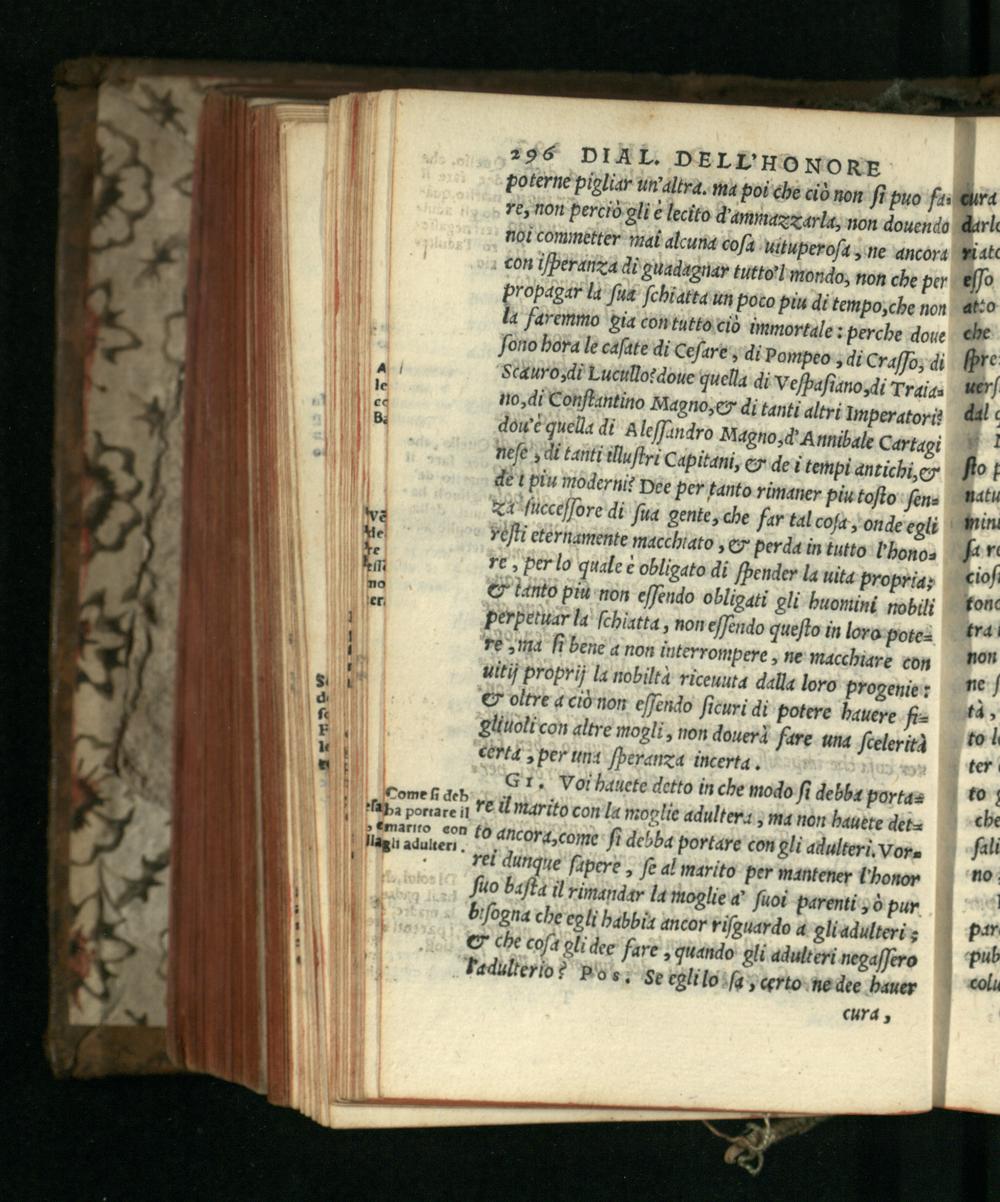 296 DIAL. DELL'HONORE
poterne pigliar un'altra. ma poi che ciò non si puo fa=
re, non perciò gli è lecito d'ammazzarla, non douendo
noi commetter mai alcuna cosa uituperosa, ne ancora
con isperanza di guadagnar tutto'l mondo, non che per
propagar la sua schiatta un poco piu di tempo, che non
la faremmo gia con tutto ciò immortale: perche doue
sono hora le casate di Cesare, di Pompeo, di Crasso, di
Scauro, di Lucullo? doue quella di Vespasiano, di Traia=
no, di Constantino Magno, & di tanti altri Imperatori?
dou'è quella di Alessandro Magno, d'Annibale Cartagi
nese, di tanti illustri Capitani, & de i tempi antichi, &
de i piu moderni? Dee per tanto rimaner piu tosto sen=
za successore di sua gente, che far tal cosa, onde egli
resti eternamente macchiato, & perda in tutto l'hono=
re, per lo quale è obligato di spender la uita propria;
& tanto più non essendo obligati gli huomini nobili
perpetuar la schiatta, non essendo questo in loro pote=
re, ma si bene a non interrompere, ne macchiare con
uitij proprij la nobiltà riceuuta dalla loro progenie:
& oltre a ciò non essendo sicuri di potere hauere fi=
gliuoli con altre mogli, non douerà fare una scelerità
certa, per una speranza incerta.
GI. Voi hauete detto in che modo si debba porta=
re il marito con la moglie adultera, ma non hauete det=
to ancora, come si debba portare con gli adulteri. Vor=
rei dunque sapere, se al marito per mantener l'honor
suo basta il rimandar la moglie a' suoi parenti, ò pur
bisogna che egli habbia ancor risguardo a gli adulteri;
& che cosa gli dee fare, quando gli adulteri negassero
l'adulterio? POS. Se egli lo sa, certo ne dee hauer
cura,
Come si deb
ba portare il
marito con
gli adulteri.
cura
darlo
riato
esso
atto
che
spre
uers
dal